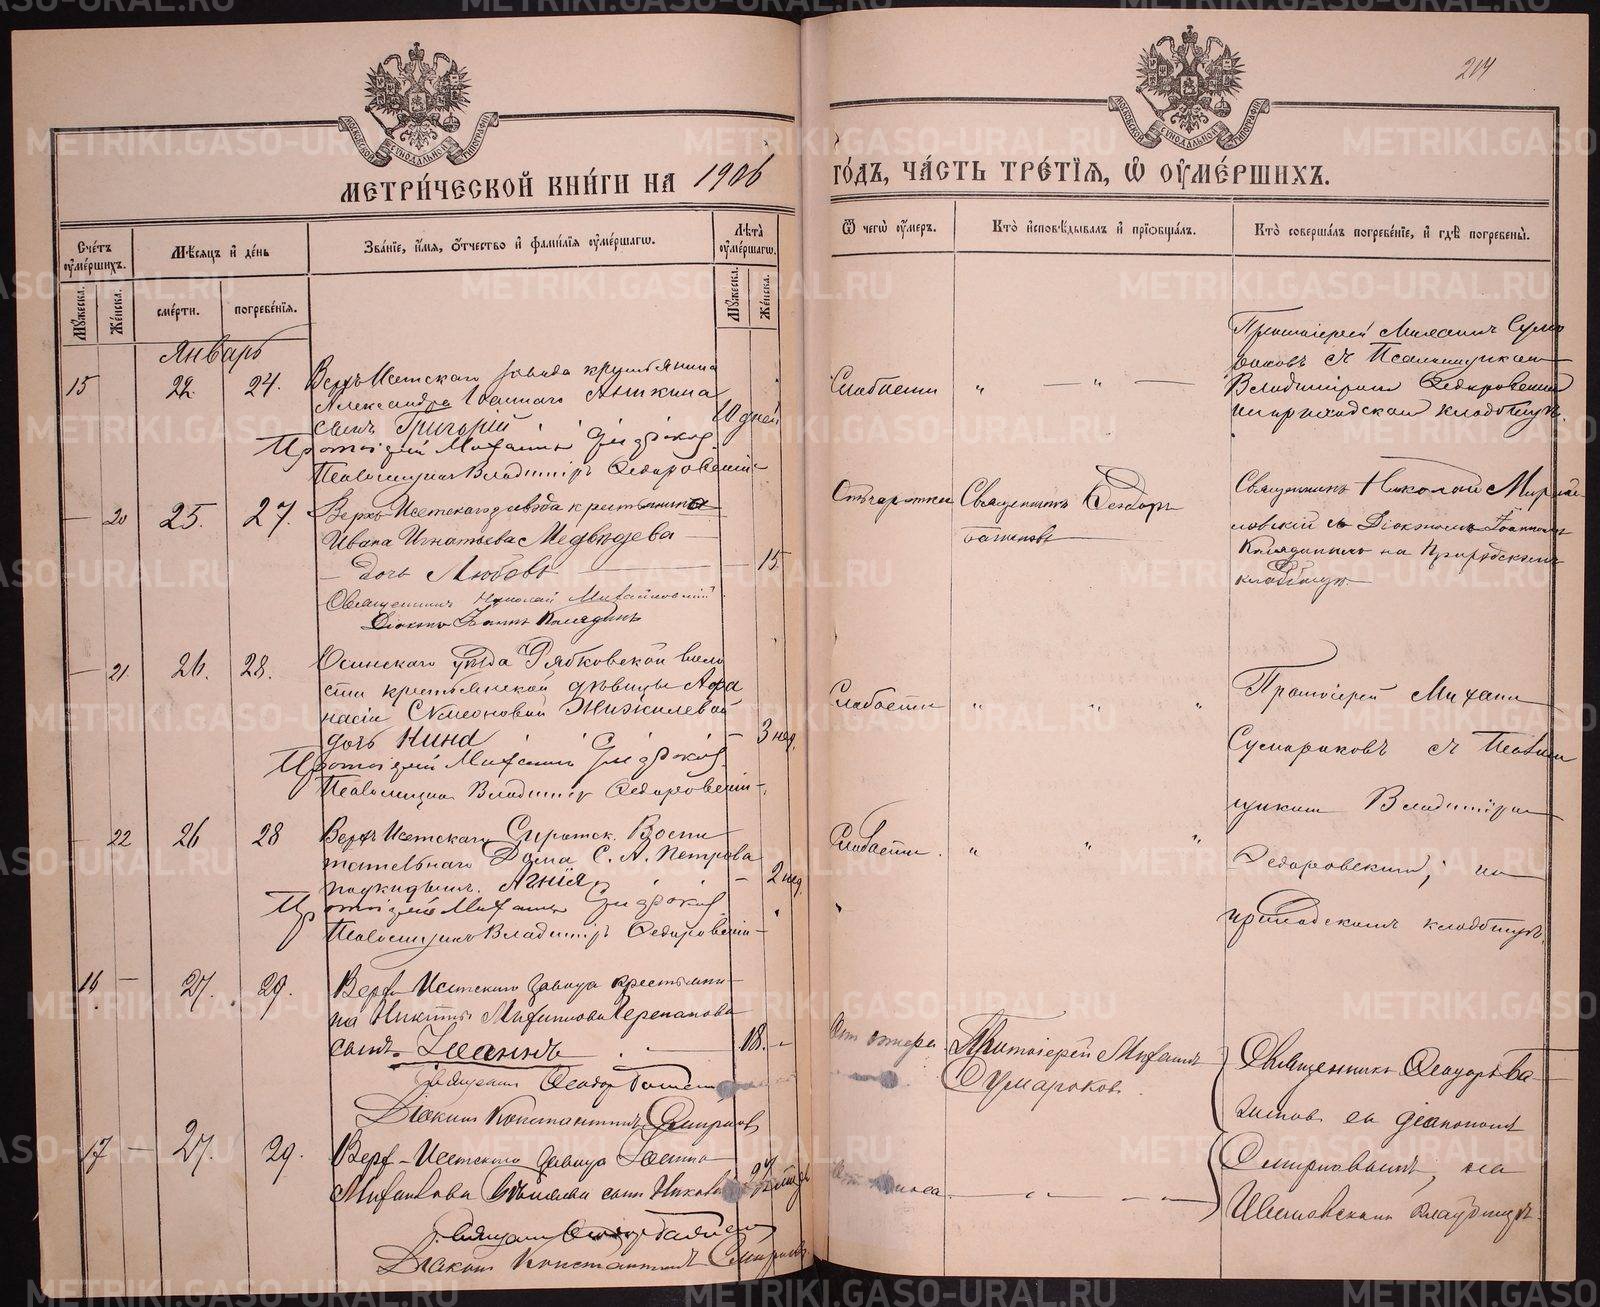 204
МОСКОВСКОЙ СѴНОДАЛЬНОЙ ТИПОГРАФІИ
МОСКОВСКОЙ СѴНОДАЛЬНОЙ ТИПОГРАФІИ
МЕТРИ́ЧЕСКОЙ КНИ́ГИ НА 1906 ГО́ДЪ, ЧА́СТЬ ТРЕ́ТІѦ, Ѡ ОУМЕ́РШИХЪ.
Сче́тъ оуме́ршихъ.
Мѣ́сяцъ и҆ де́нь
Зва́ніе, и҆́мя, ѻ҆́тчество и҆ фами́лія оуме́ршагѡ.
Лѣ́та оуме́ршагѡ.
Ѿ чегѡ̀ оу́меръ.
Кто̀ и҆сповѣ́дывалъ и҆ прїѡбща́лъ.
Кто̀ соверша́лъ погребе́ніе, и҆ гдѣ̀ погребены̀.
Мꙋ́жеска.
Же́нска.
сме́рти.
погребе́нія.
Мꙋ́жеска.
Же́нска.
Январь
15 22. 24.
Верхъ Исетскаго завода крестьянина
Александра Іоаннова Аникина
сынъ Григорій
10 дней
Протоіерей Михаилъ Сумароковъ
Псаломщикъ Владиміръ Федоровскій
Слабости „ — „ —
Протоіерей Михаилъ Сума
роковъ съ Псаломщикомъ
Владиміромъ Федоровскимъ
на приходскомъ кладбищѣ.
— 20 25. 27.
Верхъ Исетскаго завода крестьянина
Ивана Игнатьева Медвѣдева —
— дочь Любовь — 15
Священникъ Николай Михайловскій
Діаконъ Іоаннъ Калядинъ
Отъ чахотки
Священникъ Ѳеодоръ
Баженовъ
Священникъ Николай Михай
ловскій съ Діакономъ Іоанномъ
Калядинымъ на Приходскомъ
кладбищѣ
— 21. 26. 28.
Осинскаго уѣзда Рябковской воло
сти крестьянской дѣвицы Афа
насіи Симеоновой Жижилевой
дочь Нина — 3 нед.
Протоіерей Михаилъ Сумароковъ
Псаломщикъ Владиміръ Федоровскій
Слабости „ „ „
Протоіерей Михаилъ
Сумароковъ съ Псалом
щикомъ Владиміромъ
Федоровскимъ, на
приходскомъ кладбищѣ.
22 26 28
Верхъ Исетскаго Сиротск. Воспи
тательнаго Дома С. А. Петрова
подкидыш. Агнія — 2 нед.
Протоіерей Михаилъ Сумароковъ
Псаломщикъ Владиміръ Федоровскій
Слабости. „ „ „
16 — 27. 29.
Верх-Исетскаго завода крестьяни-
на Никиты Черепанова
сынъ Іоаннъ. 18.
Священникъ Ѳеодоръ Баженовъ
Діаконъ Константинъ Смирновъ
Протоіерей Михаилъ
Сумароковъ.
Священникъ Ѳеодоръ Ба
женовъ съ діакономъ
Смирновымъ, на
Ивановскомъ кладбищѣ.
17 — 27. 29.
Верх-Исетскаго завода
сынъ
Священникъ Ѳеодоръ Баженовъ
Діаконъ Константинъ Смирновъ
METRIKI.GASO-URAL.RU